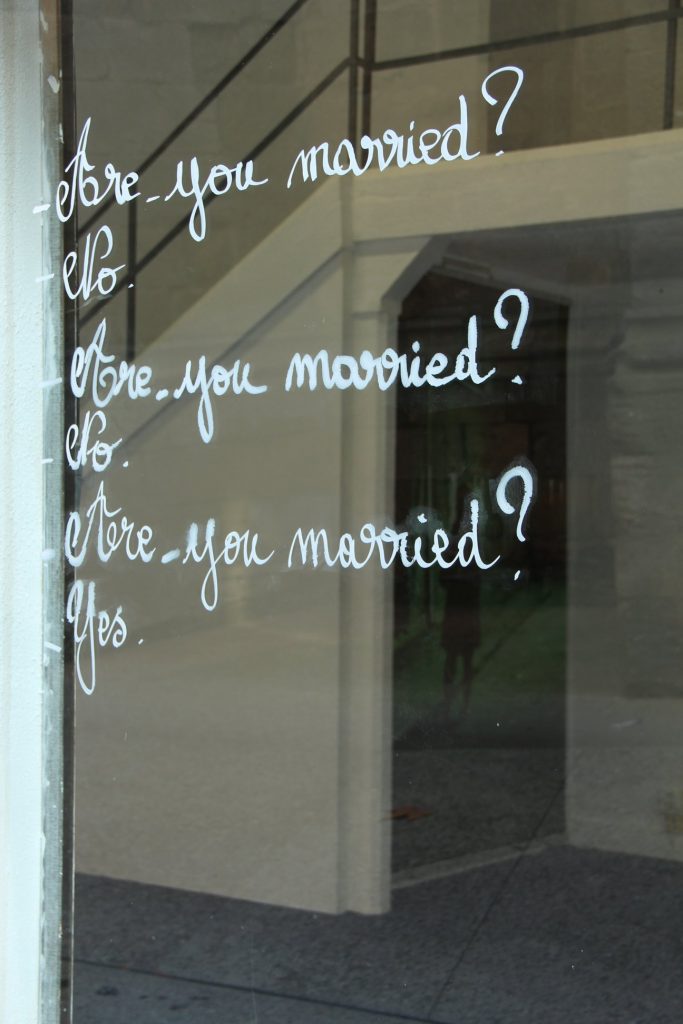 - Are-you married?
- No.
- Are-you married?
- No.
- Are-you married?
- Yes.